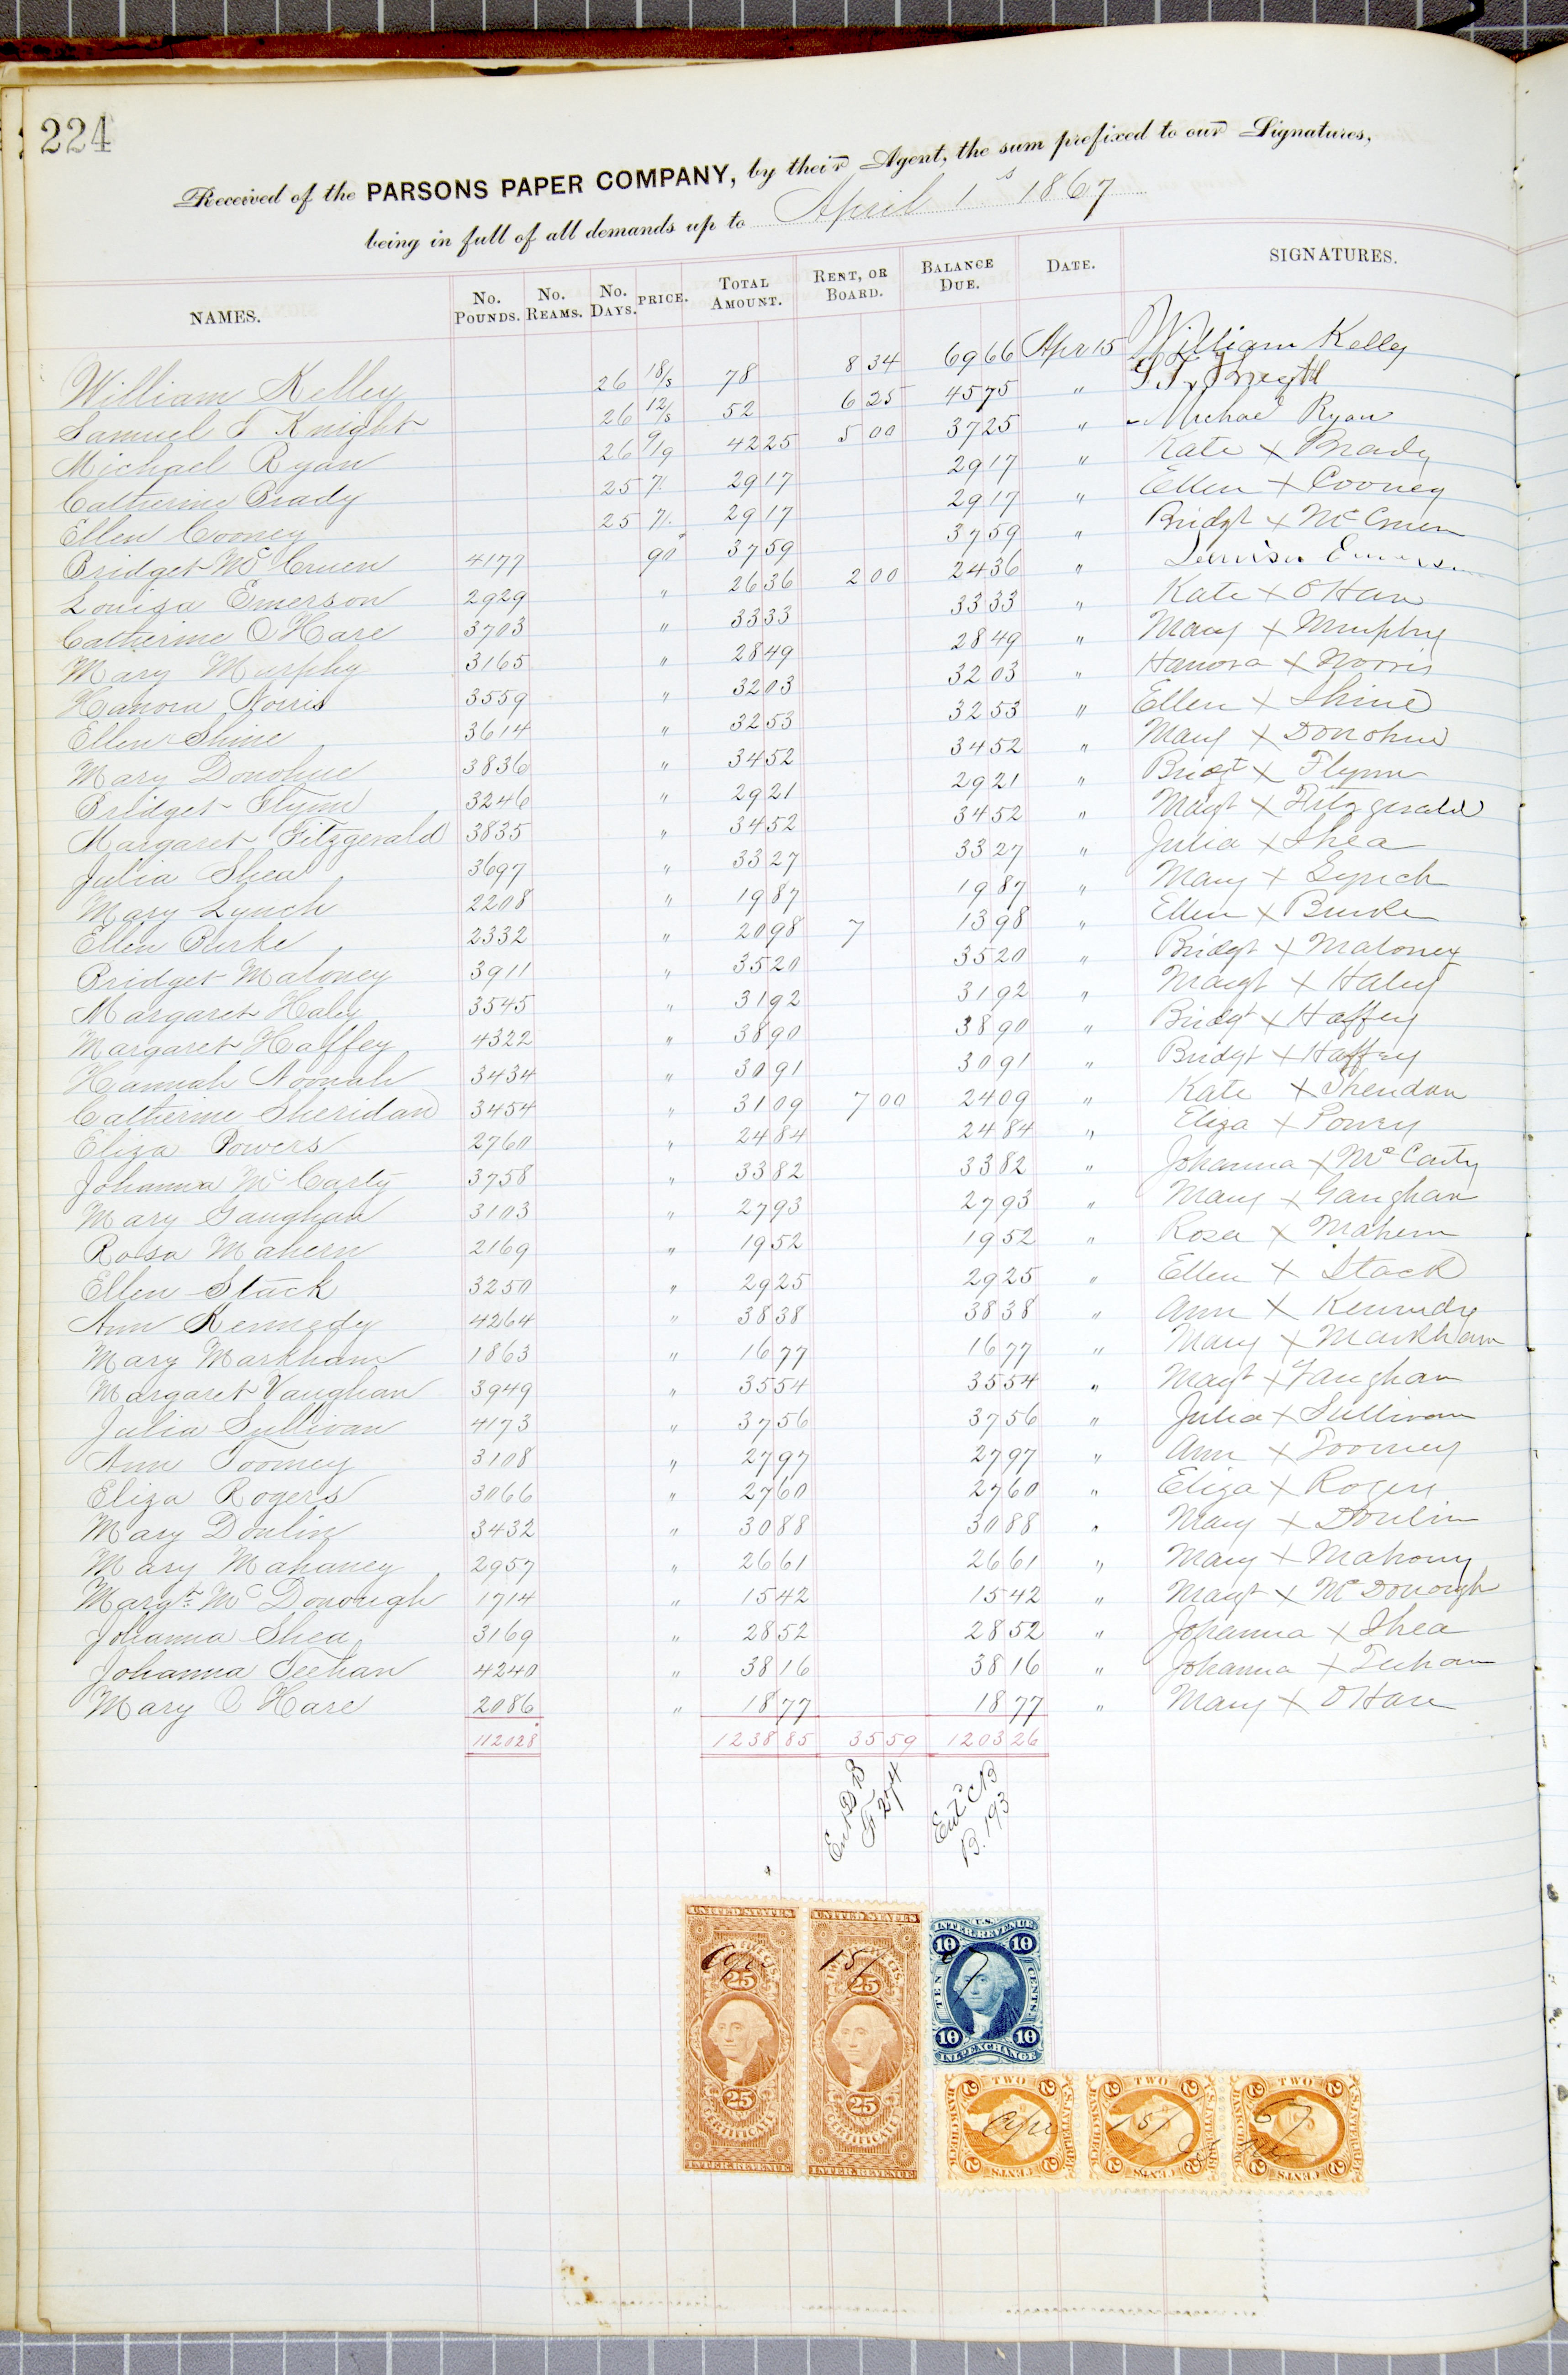 224
Received of the PARSONS PAPER COMPANY, by their Agent, the sum prefixed to our Signatures,
being in full of all demands up to April 1s 1867
NAMES. No. POUNDS. No. REAMS. No. DAYS. PRICE. TOTAL AMOUNT. RENT, OR BOARD. BALANCE DUE. DATE. SIGNATURES.
William Kelley 26 18/s 78 8 34 69 66 Apr 15 William Kelley
Samuel T Knight 26 12/s 52 6 25 45 75 " S. T. Knight
Michael Ryan 26 9/9 42 25 5 00 37 25 " Michael Ryan
Catherine Brady 25 7/. 29 17 29 17 " Kate X Brady
Ellen Cooney 25 7/. 29 17 29 17 " Ellen X Cooney
Bridget McCruen 4177 90 37 59 37 59 " Bridgt X McCruen
Louisa Emerson 2929 " 26 36 2 00 24 36 " Louisa Emerson
Catherine O Hare 3703 " 33 33 33 33 " Kate X O Hare
Mary Murphy 3165 " 28 49 28 49 " Mary X Murphy
Hanora Norris 3559 " 32 03 32 03 " Hanora X Norris
Ellen Shine 3614 " 32 53 32 53 " Ellen X Shine
Mary Donohue 3836 " 34 52 34 52 " Mary X Donohue
Bridget Flynn 3246 " 29 21 29 21 " Bridgt X Flynn
Margaret Fitzgerald 3835 " 34 52 34 52 " Magt X Fitzgerald
Julia Shea 3697 " 33 27 33 27 " Julia X Shea
Mary Lynch 2208 " 19 87 19 87 " Mary X Lynch
Ellen Burke 2332 " 20 98 7 13 98 " Ellen X Burke
Bridget Maloney 3911 " 35 20 35 20 " Bridgt X Maloney
Margaret Haley 3545 " 31 92 31 92 " Margt X Haley
Margaret Haffey 4322 " 38 90 38 90 " Bridgt X Haffey
Hannah Noonah 3434 " 30 91 30 91 " Bridgt X Haffey
Catherine Sheridan 3454 " 31 09 7 00 24 09 " Kate X Sheridan
Eliza Powers 2760 " 24 84 24 84 " Eliza X Powers
Johanna McCarty 3758 " 33 82 33 82 " Johanna X McCarty
Mary Gaughan 3103 " 27 93 27 93 " Mary X Gaughan
Rosa Mahern 2169 " 19 52 19 52 " Rosa X Mahern
Ellen Stack 3250 " 29 25 29 25 " Ellen X Stack
Ann Kennedy 4264 " 38 38 38 38 " Ann X Kennedy
Mary Markham 1863 " 16 77 16 77 " Mary X Markham
Margaret Vaughan 3949 " 35 54 35 54 " Magt X Vaughan
Julia Sullivan 4173 " 37 56 37 56 " Julia X Sullivan
Ann Toomey 3108 " 27 97 27 97 " Ann X Toomey
Eliza Rogers 3066 " 27 60 27 60 " Eliza X Rogers
Mary Donlin 3432 " 30 88 30 88 " Mary X Donlin
Mary Mahaney 2957 " 26 61 26 61 " Mary X Mahony
Margt McDonough 1714 " 15 42 15 42 " Magt X McDonough
Johanna Shea 3169 " 28 52 28 52 " Johanna X Shea
Johanna Teehan 4240 " 38 16 38 16 " Johanna X Teehan
Mary O Hare 2086 " 18 77 18 77 " Mary X O Hare
112028 1238 85 35 59 1203 26
Ent D B
F 274
Entd C B
B. 193
UNITED STATES 25 25 CERTIFICATE INTER. REVENUE
UNITED STATES 25 25 CERTIFICATE INTER. REVENUE
Apr 1st 67
U.S. INTER. REVENUE 10 10 TEN CENTS. 10 10 INL. EXCHANGE
TWO CENTS BANK CHECK U.S. INTER. REV. 2 2 2 2
TWO CENTS BANK CHECK U.S. INTER. REV. 2 2 2 2
TWO CENTS BANK CHECK U.S. INTER. REV. 2 2 2 2
Apr 1st 67